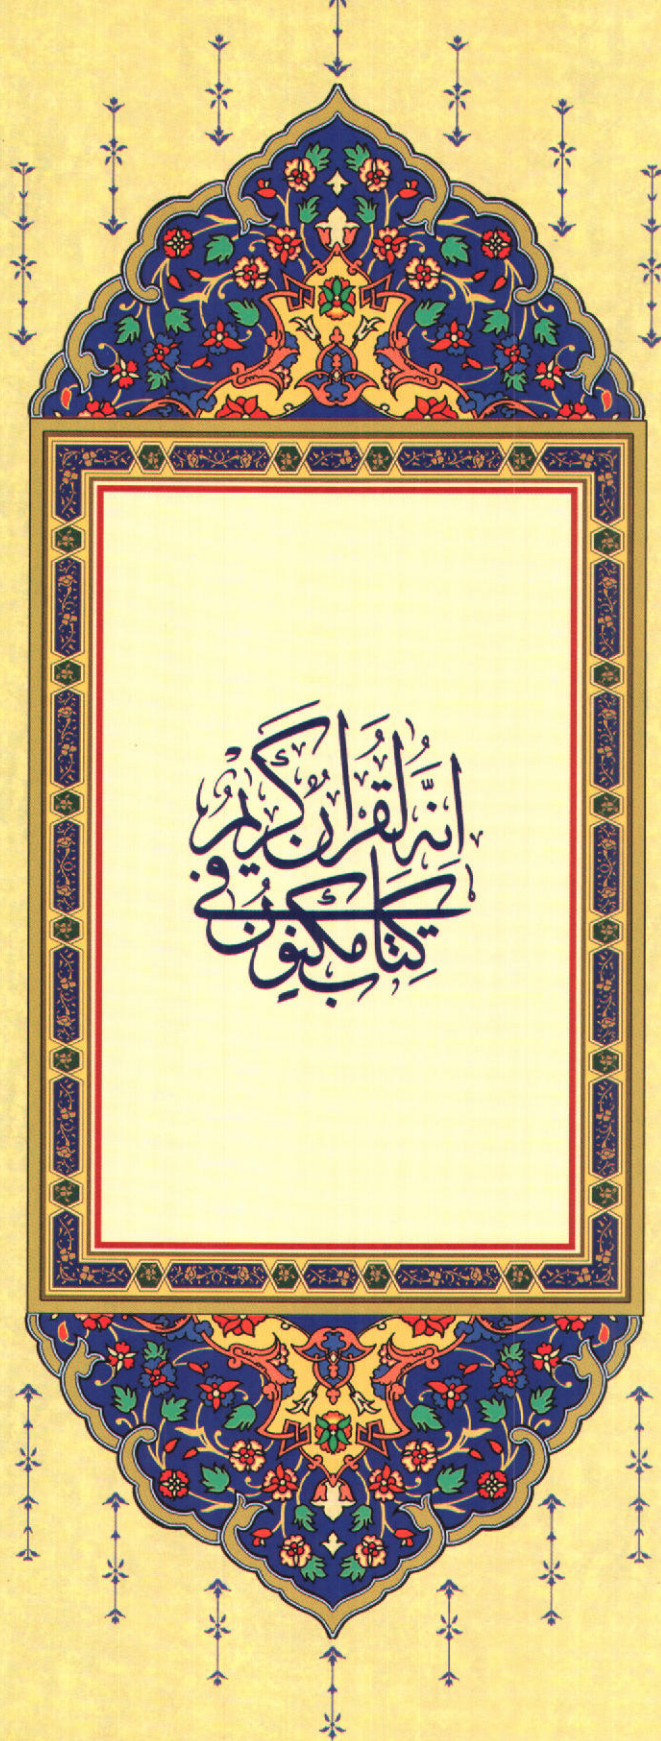 اِنَّهُ لَقُرْاٰنٌ كَرِيمٌ
فِي كِتَابٍ مَكْنُونٍ